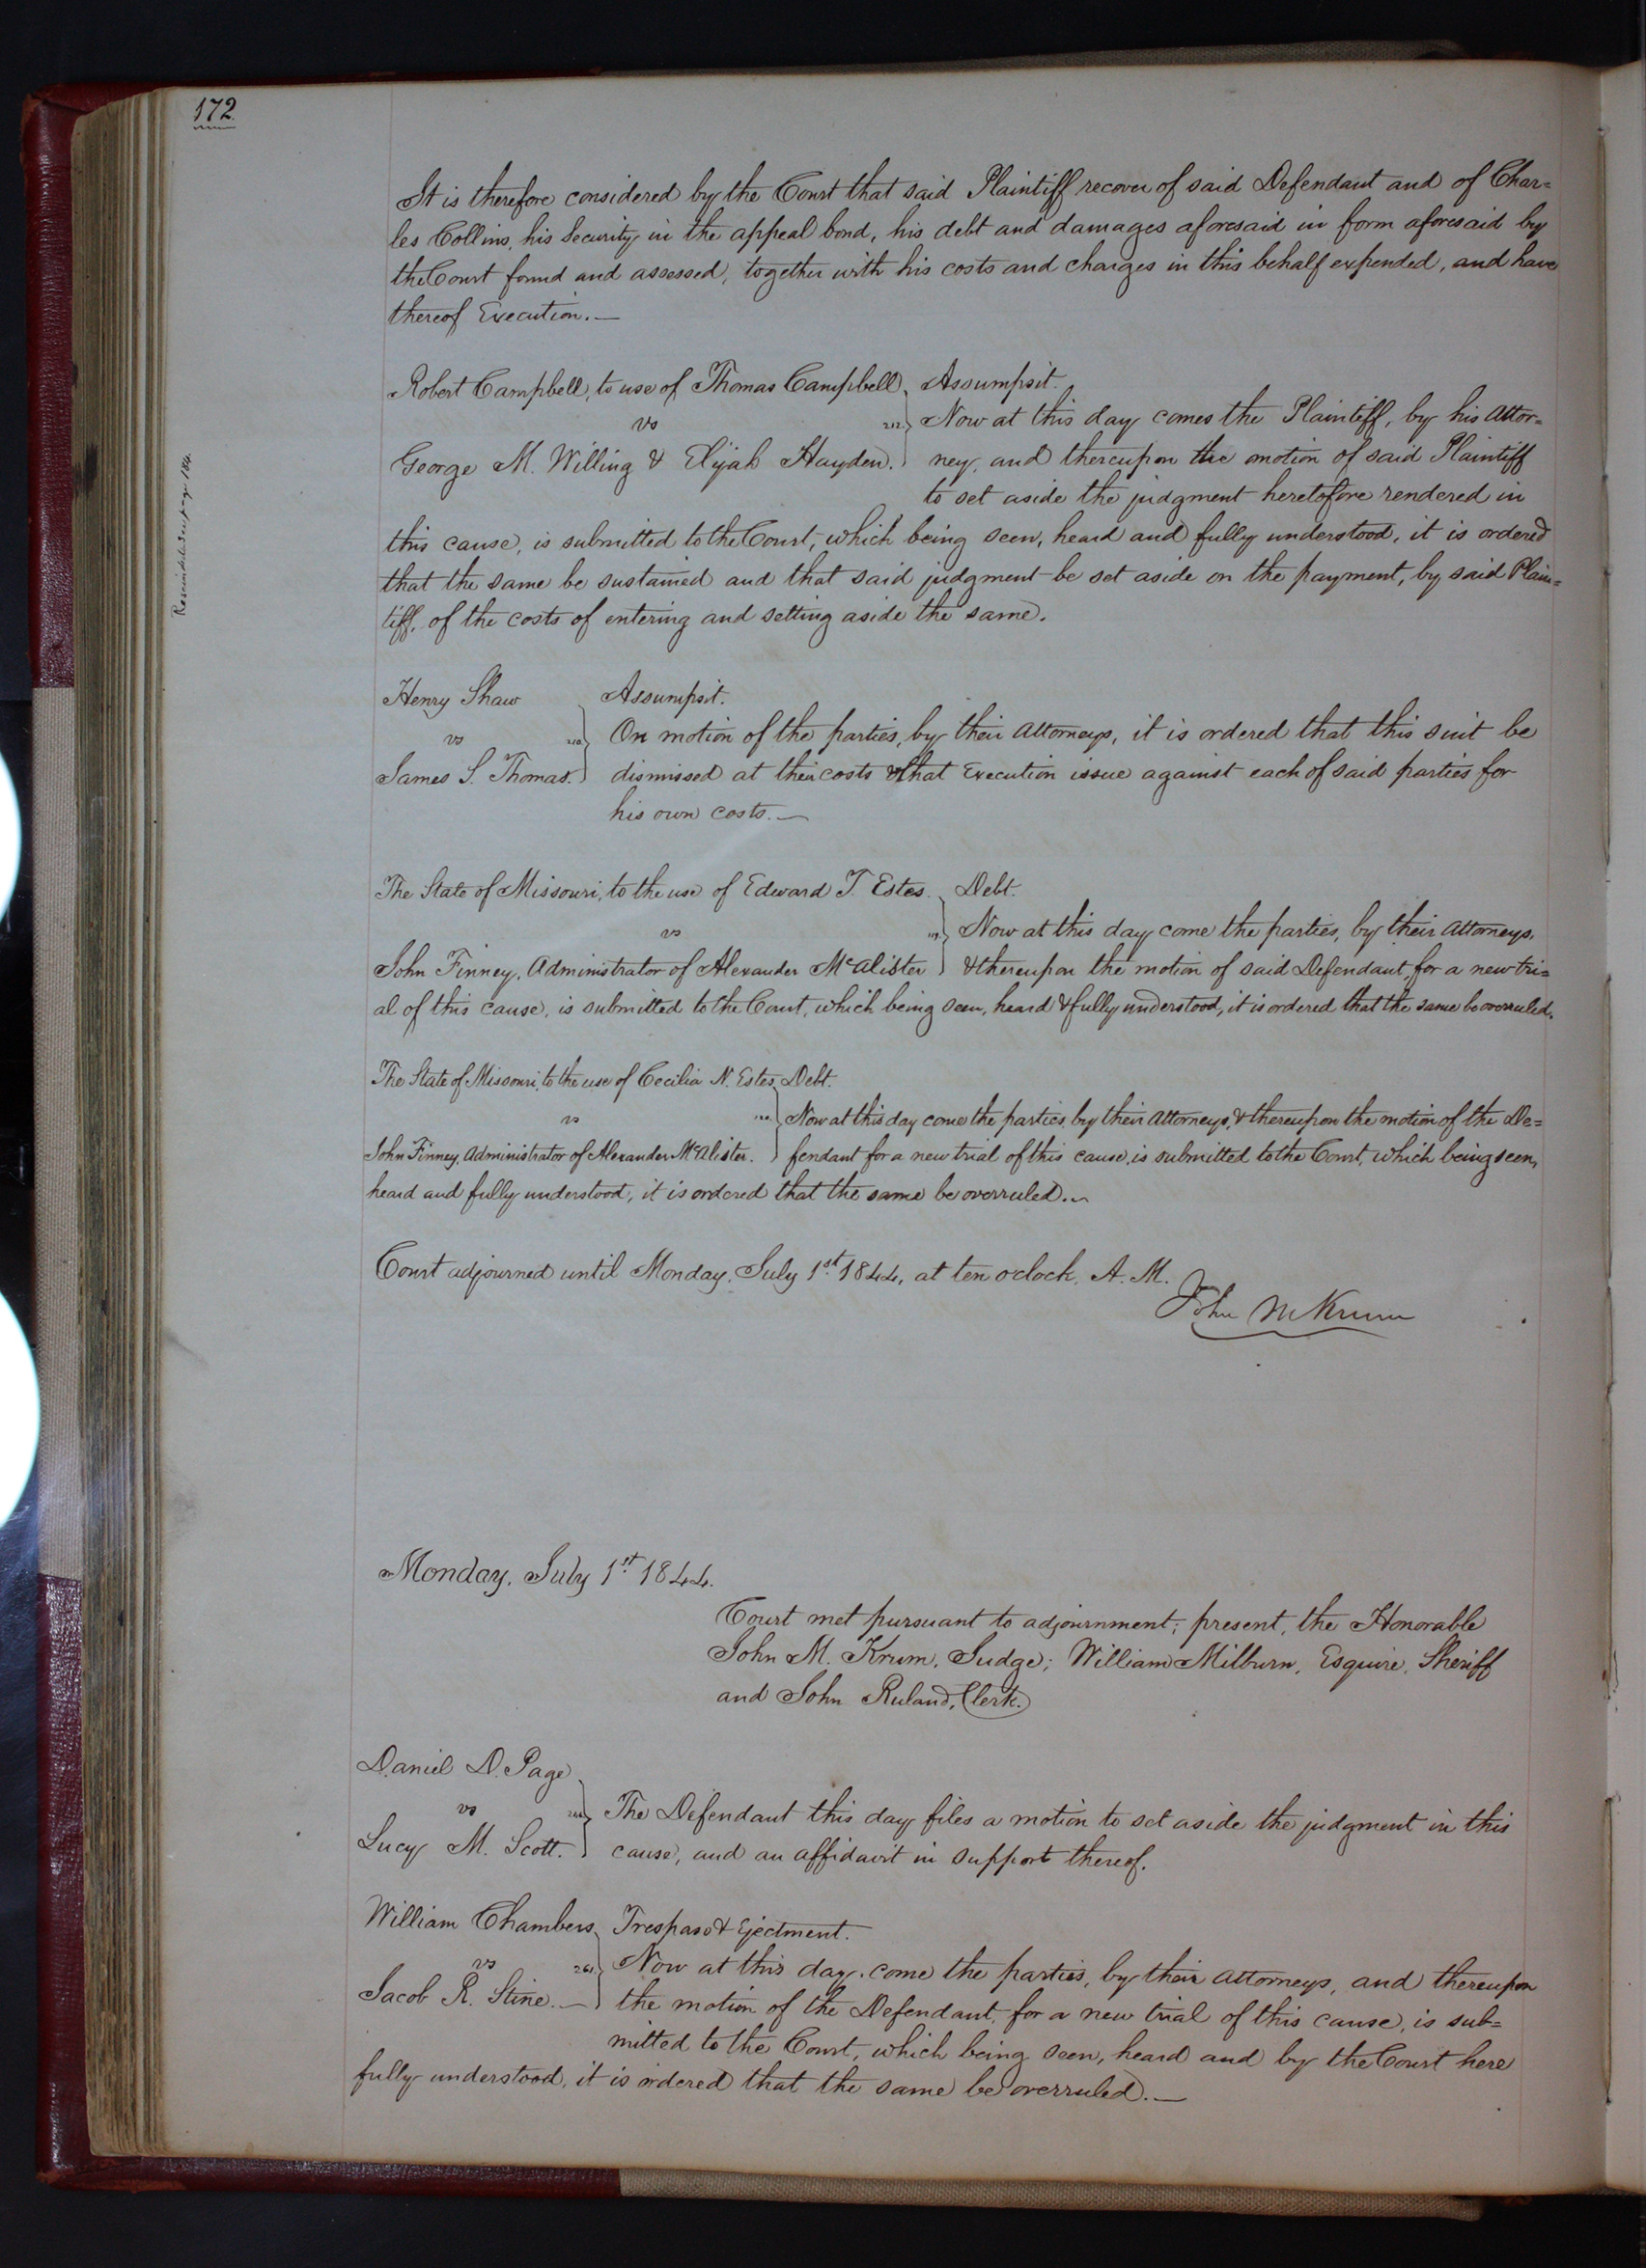 172.
It is therefore considered by the Court that said Plaintiff recover of said Defendant and of Char=
les Collins, his Security in the appeal bond, his debt and damages aforesaid in form aforesaid by
the Court found and assessed, together with his costs and charges in this behalf expended, and have
thereof Execution.—
Robert Campbell, to use of Thomas Campbell Assumpsit.
vs 212. Now at this day comes the Plaintiff, by his Attor=
George M. Willing & Elijah Hayden. ney, and thereupon the motion of said Plaintiff
to set aside the judgment heretofore rendered in
this cause, is submitted to the Court, which being seen, heard and fully understood, it is ordered
that the same be sustained and that said judgment be set aside on the payment, by said Plain=
tiff, of the costs of entering and setting aside the same.
see page 184.
Henry Shaw Assumpsit.
vs On motion of the parties, by their Attorneys, it is ordered that this suit be
James S. Thomas. dismissed at their costs & that Execution issue against each of said parties for
his own costs.—
The State of Missouri, to the use of Edward T. Estes. Debt.
vs Now at this day come the parties, by their Attorneys,
John Finney, Administrator of Alexander McAlister & thereupon the motion of said Defendant, for a new tri=
al of this cause, is submitted to the Court, which being seen, heard & fully understood, it is ordered that the same be overruled.
The State of Missouri, to the use of Cecilia N. Estes Debt.
vs Now at this day come the parties, by their Attorneys, & thereupon the motion of the De=
John Finney, Administrator of Alexander McAlister. fendant for a new trial of this cause, is submitted to the Court, which being seen,
heard and fully understood, it is ordered that the same be overruled.—
Court adjourned until Monday, July 1st 1844, at ten o'clock, A. M.
John M Krum
Monday, July 1st 1844.
Court met pursuant to adjournment; present, the Honorable
John M. Krum, Judge; William Milburn, Esquire, Sheriff
and John Ruland, Clerk.
Daniel D. Page
vs The Defendant this day files a motion to set aside the judgment in this
Lucy M. Scott. cause, and an affidavit in support thereof.
William Chambers Trespass & Ejectment.
vs 261. Now at this day come the parties, by their Attorneys, and thereupon
Jacob R. Stine.— the motion of the Defendant, for a new trial of this cause, is sub=
mitted to the Court, which being seen, heard and by the Court here
fully understood, it is ordered that the same be overruled.—